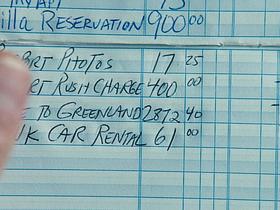 RESERVATION 900 00
PHOTOS 17 25
RUSH CHARGE 400 00
TO GREENLAND 2872 40
CAR RENTAL 61 00